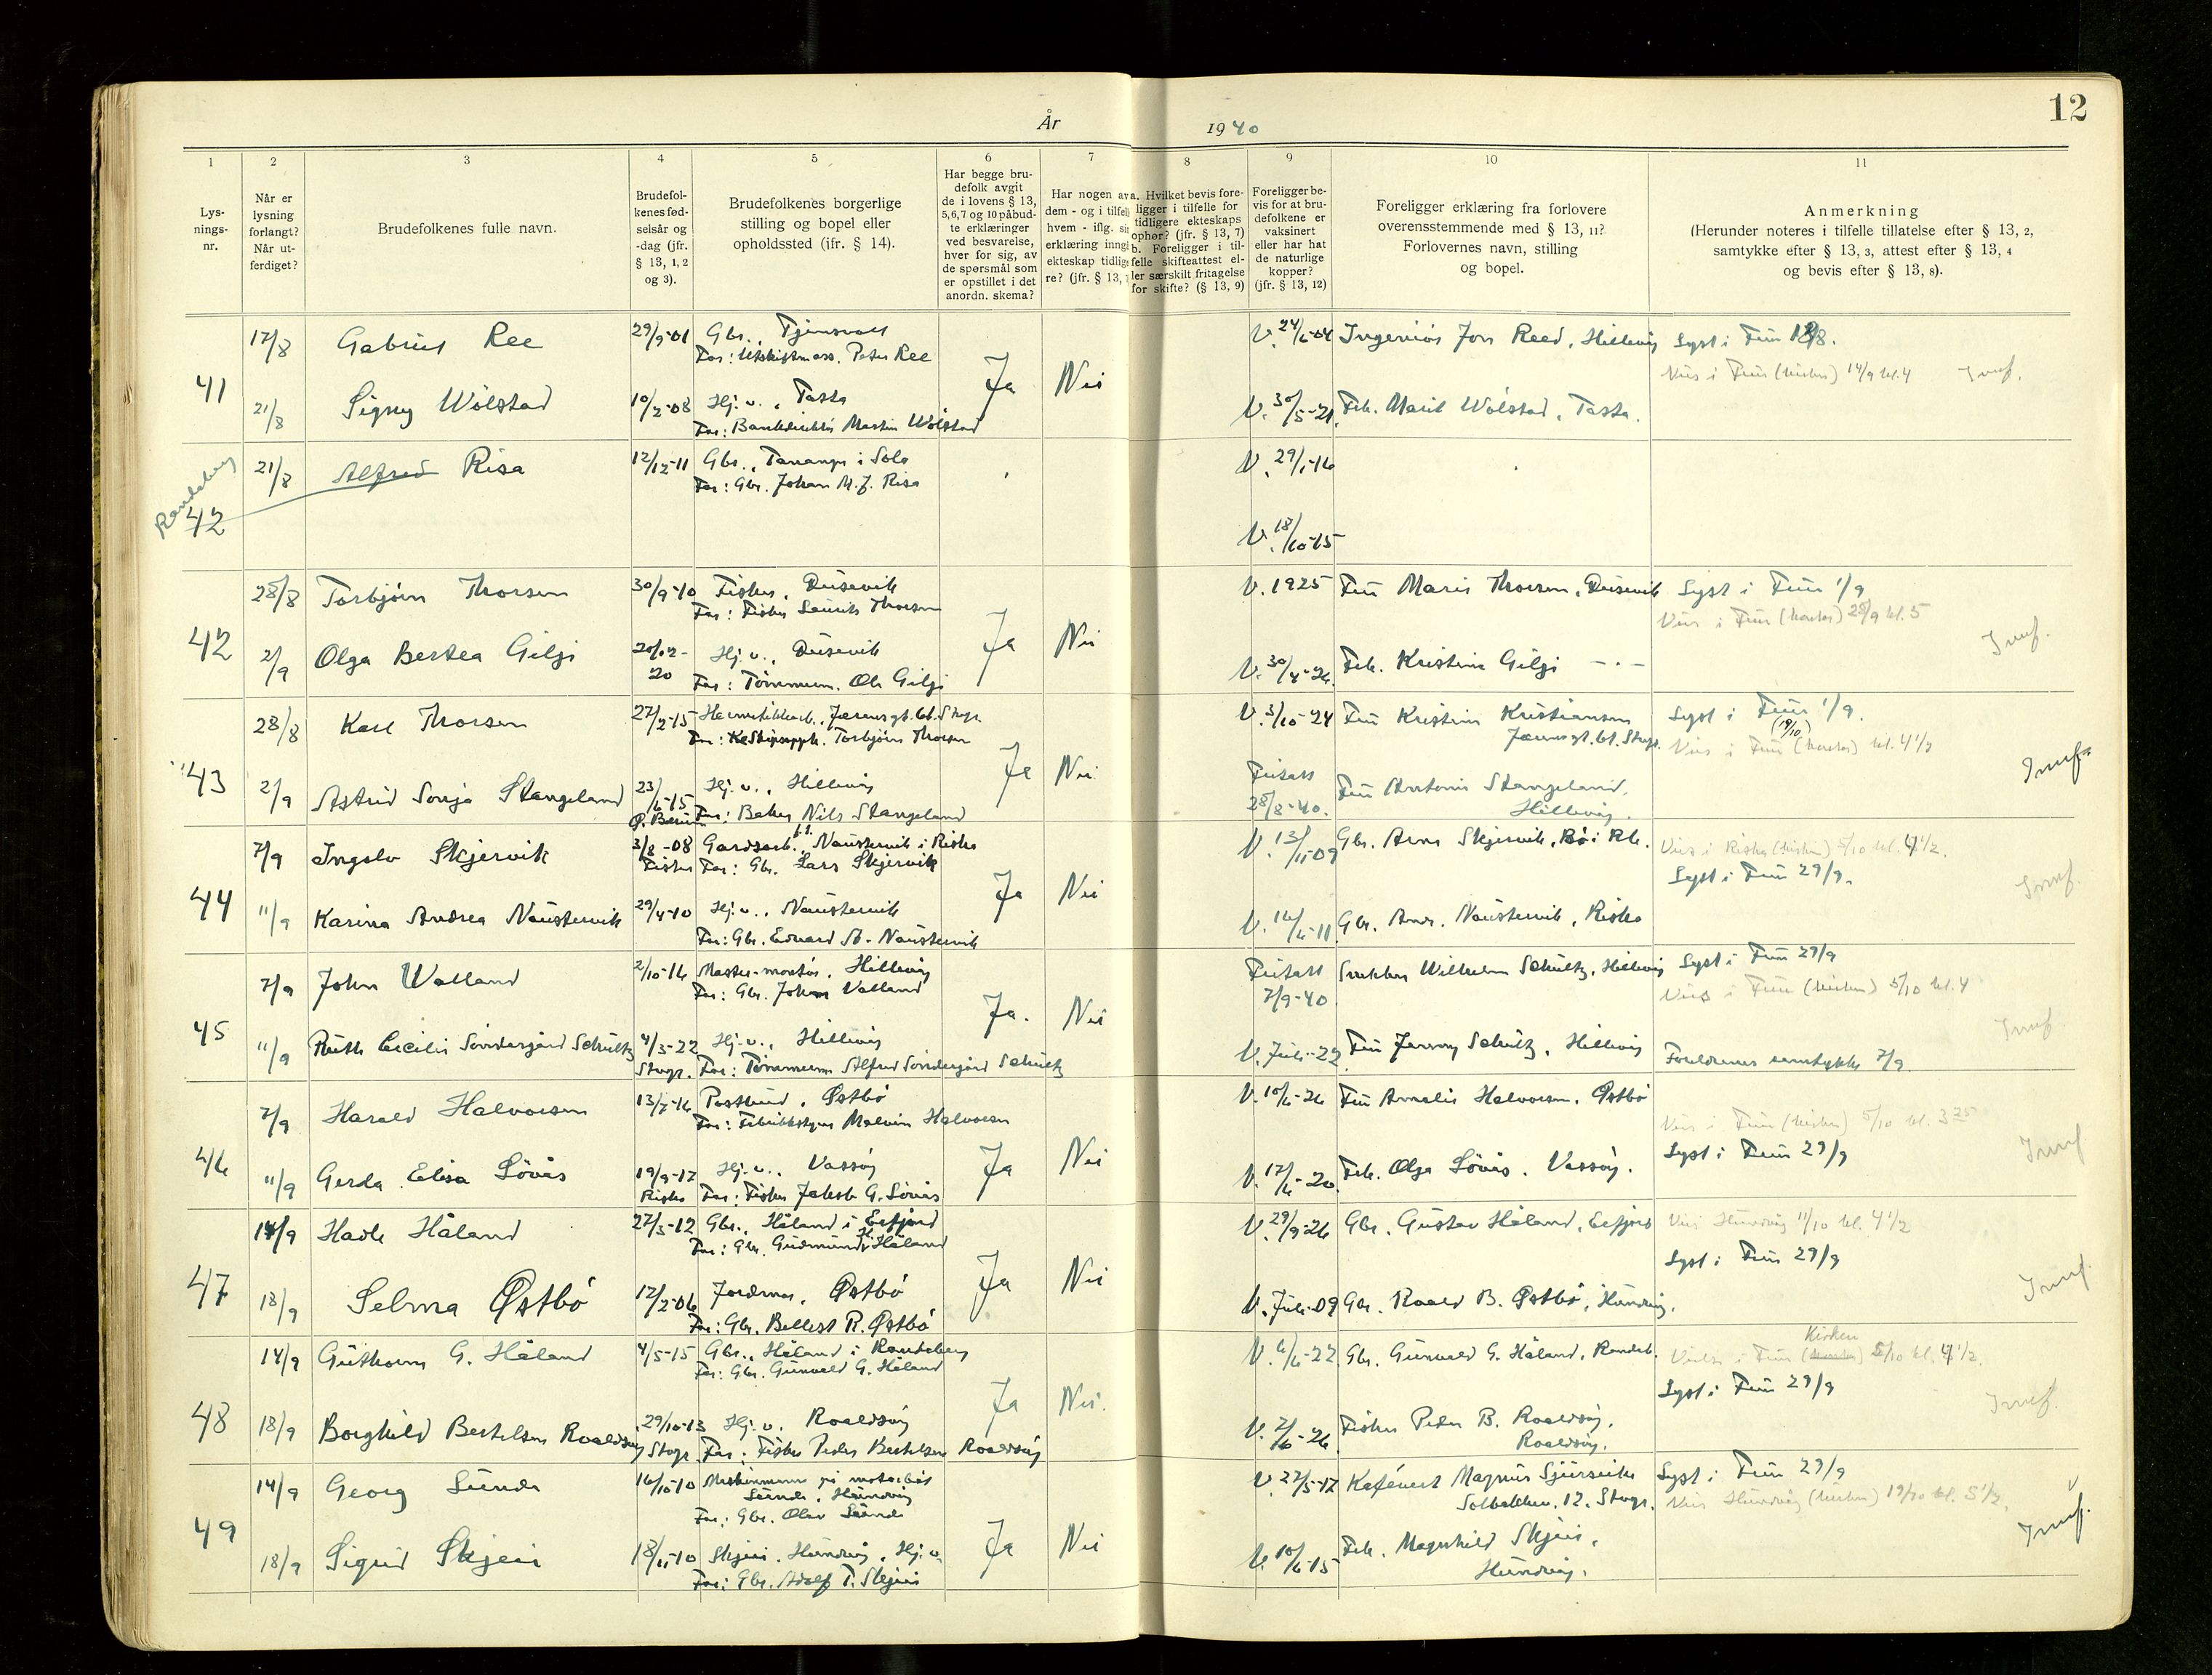 12
År 1940
1 2 3 4 5 6 7 8 9 10 11
Lys-
nings-
nr.
Når er
lysning
forlangt?
Når ut-
ferdiget?
Brudefolkenes fulle navn.
Brudefol-
kenes fød-
selsår og
-dag (jfr.
§ 13, 1, 2
og 3).
Brudefolkenes borgerlige
stilling og bopel eller
opholdssted (jfr. § 14).
Har begge bru-
defolk avgit
de i lovens § 13,
5,6,7 og 10 påbud-
te erklæringer
ved besvarelse,
hver for sig, av
de spørsmål som
er opstillet i det
anordn. skema?
Har nogen av
dem - og i tilfelle
hvem - iflg. sin
erklæring inngått
ekteskap tidlige-
re? (jfr. § 13, 7
a. Hvilket bevis fore-
ligger i tilfelle for
tidligere ekteskaps
ophør? (jfr. § 13, 7)
b. Foreligger i til-
felle skifteattest el-
ler særskilt fritagelse
for skifte? (§ 13, 9)
Foreligger be-
vis for at bru-
defolkene er
vaksinert
eller har hat
de naturlige
kopper?
(jfr. § 13, 12)
Foreligger erklæring fra forlovere
overensstemmende med § 13, 11?
Forlovernes navn, stilling
og bopel.
Anmerkning
(Herunder noteres i tilfelle tillatelse efter § 13, 2,
samtykke efter § 13, 3, attest efter § 13, 4
og bevis efter § 13, 8).
41
17/8 Gabriel Ree 29/9-01 Gbr., Tjensvoll V. 24/6-04 Ingeniør Jon Reed, Hillevåg Lyst i Frue 18/8.
Far: Utskiftnass. Peter Ree Ja Nei Vies i Frue (kirken) 14/9 kl. 4
21/8 Signy Wølstad 10/2-08 Hj. v., Tasta V. 30/5-21 Frk. Marit Wølstad, Tasta.
Far: Bankdirektør Martin Wølstad
Randaberg
42
21/8 Alfred Risa 12/12-11 Gbr., Tananger i Sola V. 29/1-16
Far: Gbr. Johan M. J. Risa
V. 18/10-15
42
28/8 Torbjørn Thorsen 30/9-10 Fisker, Dusevik V. 1925 Fru Marie Thorsen, Dusevik Lyst i Frue 1/9
Far: Fisker Laurits Thorsen Ja Nei Vies i Frue (kontor) 28/9 kl. 5
2/9 Olga Bertea Gilje 20/12-20 Hj. v., Dusevik V. 30/4-26 Frk. Kristine Gilje — " —
Far: Tømmerm. Ole Gilje
43
28/8 Karl Thorsen 27/2-15 Hermetikkarb., Jærensgt. 61. Stvgr. V. 3/10-24 Fru Kristine Kristiansen Lyst i Frue 1/9.
Far: Torbjørn Thorsen Jærensgt. 61. Stvgr. Vies i Frue (kontor) (19/10) kl. 4 1/2
Ja Nei
2/9 Astrid Sonja Stangeland 23/6-15 Hj. v., Hillevåg Friatt. 28/8-40. Fru Antonie Stangeland,
Far: Baker Nils Stangeland Hillevåg.
44
7/9 Ingolv Skjervik 3/8-08 Gardsarb., Naustervik i Riska V. 13/11-09 Gbr. Arne Skjervik, Bø i Rk. Vies i Riska (kirken) 5/10 kl. 4 1/2.
Far: Gbr. Lars Skjervik Ja Nei Lyst i Frue 29/9.
11/9 Karina Andrea Naustervik 29/4-10 Hj. v., Naustervik V. 16/6-11 Gbr. Andr. Naustervik, Riska
Far: Gbr. Edvard A. Naustervik
45
7/9 John Walland 2/10-16 Hillevåg Friatt. 7/9-40 Snekker Wilhelm Schultz, Hillevåg Lyst i Frue 29/9
Far: Gbr. Johan Valland Ja. Nei Vies i Frue (kirken) 5/10 kl. 4
11/9 Ruth Cecilie Søndergård Schultz 4/3-22 Stvgr. Hj. v., Hillevåg V. Juli-22 Fru Jenny Schultz, Hillevåg
Far: Tømmerm. Alfred Søndergård Schultz Foreldrenes samtykke 7/9.
46
7/9 Harald Halvorsen 13/7-16 Postbud, Østbø V. 10/6-26 Fru Amalie Halvorsen, Østbø
Far: Fabrikkstyrer Malvin Halvorsen Ja Nei Vies i Frue (kirken) 5/10 kl. 3
11/9 Gerda Elisa Løvås 19/9-17 Riska Hj. v., Vassøy V. 17/6-20 Frk. Olga Løvås, Vassøy. Lyst i Frue 29/9
Far: Fisker Jakob G. Løvås
47
14/9 Hadle Håland 27/3-12 Gbr., Håland i Erfjord V. 29/9-26 Gbr. Gustav Håland, Erfjord Vies Hundvåg 11/10 kl. 4 1/2
Far: Gbr. Gudmund Håland Ja Nei Lyst i Frue 29/9
18/9 Selma Østbø 12/2-06 Jordmor, Østbø V. Juli-09 Gbr. Roald B. Østbø, Hundvåg.
Far: Gbr. Bellest R. Østbø
48
14/9 Guthorm G. Håland 4/5-15 Gbr., Håland i Randaberg V. 6/6-22 Gbr. Gunvald G. Håland, Randab. Vies i Frue (Kirken) 5/10 kl. 4 1/2.
Far: Gbr. Gunvald G. Håland Ja Nei. Lyst i Frue 29/9
18/9 Borghild Bertelsen Roaldsøy 29/10-13 Stvgr. Hj. v. Roaldsøy V. 2/6-26 Fisker Peder B. Roaldsøy,
Far: Fisker Peder Bertelsen Roaldsøy Roaldsøy.
49
14/9 Georg Sunde 16/10-10 Maskinmann på motorbåt V. 27/5-17 Magnus Sjursike Lyst i Frue 29/9
Sunde, Hundvåg Solbakken, 12. Stvgr. Vies Hundvåg (kirken) 19/10 kl. 5 1/2.
Far: Gbr. Olav Sunde Ja Nei
18/9 Sigrid Skjei 18/11-10 Skjei, Hundvåg, Hj. v. V. 10/6-15 Frk. Magnhild Skjei,
Far: Gbr. Adolf T. Skjei Hundvåg.